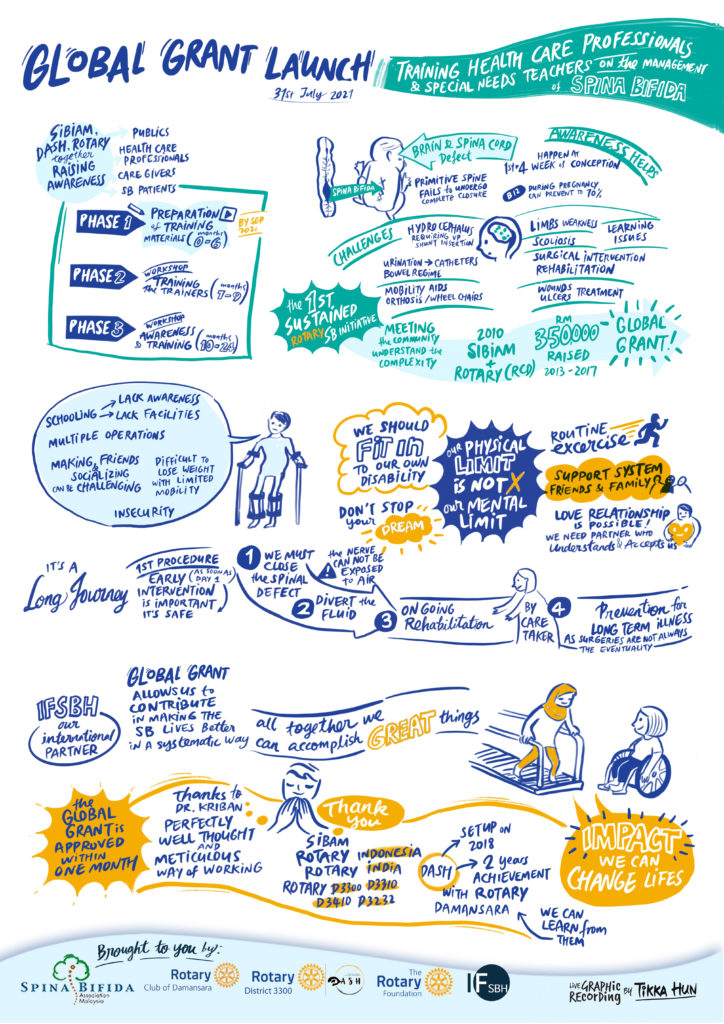 GLOBAL GRANT LAUNCH
31st July 2021
TRAINING HEALTH CARE PROFESSIONALS
& SPECIAL NEEDS TEACHERS on the MANAGEMENT
of SPINA BIFIDA
SIBIAM,
DASH, ROTARY
together
RAISING
AWARENESS
PUBLICS
HEALTH CARE
PROFESSIONALS
CARE GIVERS
SB PATIENTS
PHASE 1
PREPARATION
of TRAINING
MATERIALS (months 0-6)
BY SEP
2021
PHASE 2
WORKSHOP
TRAINING
THE TRAINERS (months 7-9)
PHASE 3
WORKSHOP
AWARENESS
& TRAINING (months 10-24)
SPINA BIFIDA
BRAIN & SPINA CORD
Defect
PRIMITIVE SPINE
FAILS to UNDERGO
COMPLETE CLOSURE
AWARENESS HELPS
HAPPEN AT
1st-4 WEEK of CONCEPTION
B12
DURING PREGNANCY
CAN PREVENT to 70%
CHALLENGES
HYDROCEPHALUS
REQUIRING VP
SHUNT INSERTION
URINATION → CATHETERS
BOWEL REGIME
MOBILITY AIDS
ORTHOSIS/WHEEL CHAIRS
LIMBS WEAKNESS
SCOLIOSIS
LEARNING
ISSUES
SURGICAL INTERVENTION
REHABILITATION
WOUNDS
ULCERS TREATMENT
the 1ST
SUSTAINED
ROTARY SB INITIATIVE
MEETING
the COMMUNITY
UNDERSTAND the
COMPLEXITY
2010
SIBIAM
+
ROTARY (RCD)
RM
350000
RAISED
2013-2017
GLOBAL
GRANT!
SCHOOLING
LACK AWARENESS
LACK FACILITIES
MULTIPLE OPERATIONS
MAKING FRIENDS
&
SOCIALIZING
CAN BE CHALLENGING
DIFFICULT to
LOSE WEIGHT
WITH LIMITED
MOBILITY
INSECURITY
WE SHOULD
FIT IN
TO OUR OWN
DISABILITY
DON'T STOP
your
DREAM
OUR PHYSICAL
LIMIT
is NOT
our MENTAL
LIMIT
ROUTINE
exercise
SUPPORT SYSTEM
FRIENDS & FAMILY
LOVE RELATIONSHIP
is POSSIBLE!
WE NEED PARTNER WHO
Understands & Accepts us
IT'S A
Long Journey
1ST PROCEDURE
EARLY (AS SOON AS DAY 1)
INTERVENTION
is IMPORTANT
IT'S SAFE
1
WE MUST
CLOSE
the SPINAL
DEFECT
the NERVE
CAN NOT BE
EXPOSED
to AIR
2
DIVERT the
FLUID
3
ON GOING
Rehabilitation
BY
CARE
TAKER
4
Prevention for
LONG TERM ILLNESS
AS SURGERIES ARE NOT ALWAYS
THE EVENTUALITY
IFSBH
our
international
PARTNER
GLOBAL GRANT
ALLOWS US to
CONTRIBUTE
IN MAKING THE
SB LIVES Better
IN A systematic way
all together we
can accomplish GREAT things
the
GLOBAL
GRANT is
APPROVED
WITHIN
ONE MONTH
Thanks to
DR. KRIBAN
PERFECTLY
WELL THOUGHT
AND
METICULOUS
WAY of WORKING
Thank
you
SIBAM
ROTARY INDONESIA
ROTARY INDIA
ROTARY D3300 D3310
D3410 D3232
DASH
SETUP on
2018
2 years
ACHIEVEMENT
WITH ROTARY
DAMANSARA
WE CAN
LEARN from
THEM
IMPACT
WE CAN
CHANGE LIFES
Brought to you by:
SPINA BIFIDA
Association
Malaysia
Rotary
Club of Damansara
Rotary
District 3300
DASH
The
Rotary
Foundation
IF
SBH
LIVE GRAPHIC
RECORDING BY TIKKA HUN